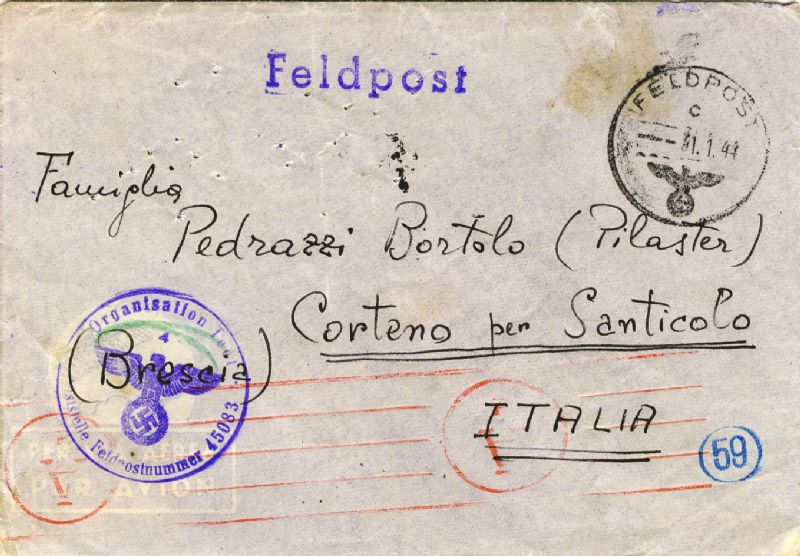 Feldpost
FELDPOST
c
31.1.44
Famiglia
Pedrazzi Bortolo (Pilaster)
Corteno per Santicolo
(Brescia)
ITALIA
Organisation Todt
4
Feldpostnummer 45083
59
PAR AVION